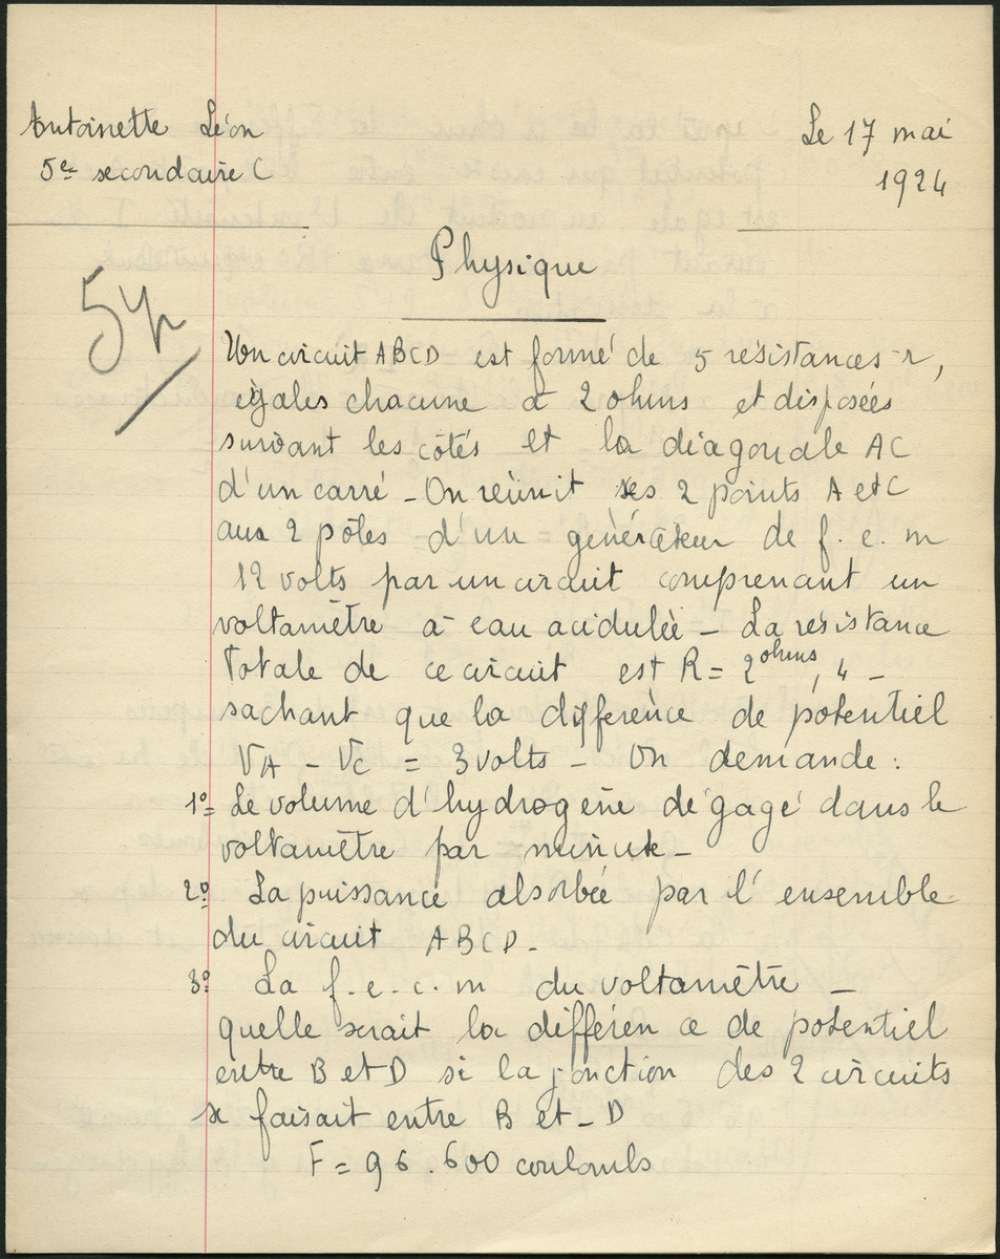 Antoinette Léon
5e secondaire C
Le 17 mai
1924
Physique
Un circuit ABCD est formé de 5 résistances r,
égales chacune à 2 ohms et disposées
suivant les côtés et la diagonale AC
d'un carré - On réunit les 2 points A et C
aux 2 pôles d'un générateur de f. e. m
12 volts par un circuit comprenant un
voltamètre à eau acidulée - La résistance
totale de ce circuit est R = 2 ohms, 4 -
sachant que la différence de potentiel
VA - VC = 3 volts - On demande :
1º Le volume d'hydrogène dégagé dans le
voltamètre par minute -
2º La puissance absorbée par l'ensemble
du circuit ABCD -
3º La f. e. c. m du voltamètre -
quelle serait la différence de potentiel
entre B et D si la jonction des 2 circuits
se faisait entre B et D
F = 96.600 coulombs